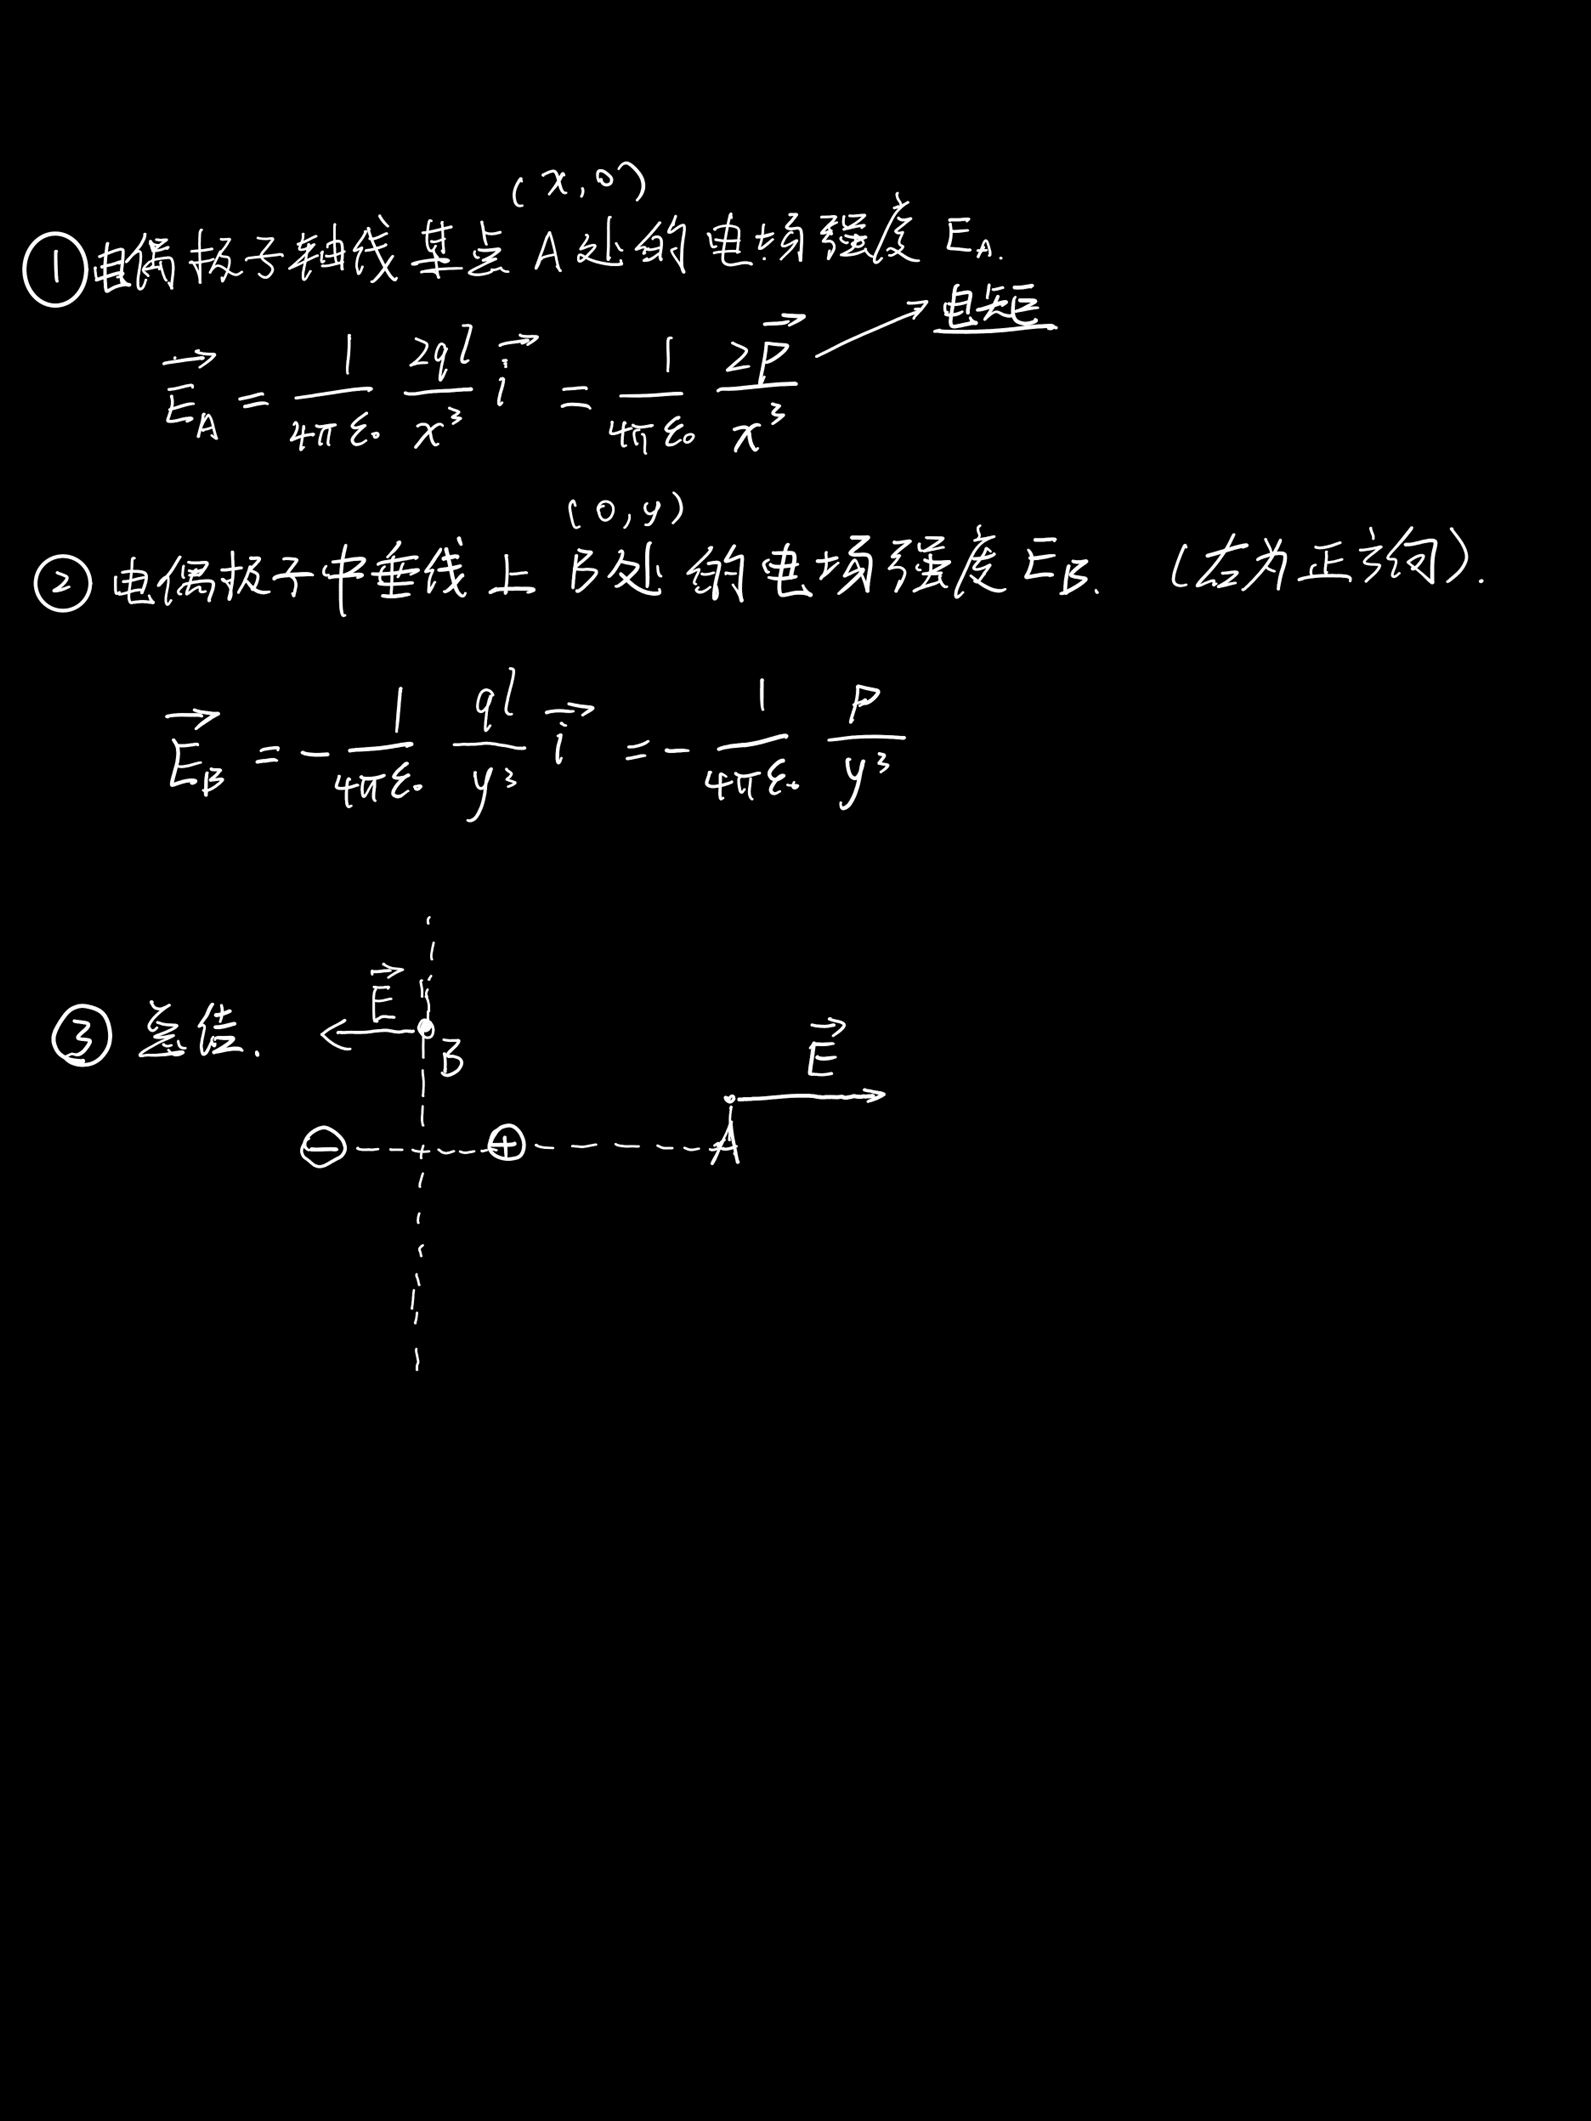 (x,0)
①电偶极子轴线某点A处的电场强度 E_A.
电矩
\vec{E}_A = \frac{1}{4πε₀} \frac{2ql}{x³} \vec{i} = \frac{1}{4πε₀} \frac{2\vec{p}}{x³}
(0,y)
②电偶极子中垂线上B处的电场强度 E_B. (右为正方向).
\vec{E}_B = -\frac{1}{4πε₀} \frac{ql}{y³} \vec{i} = -\frac{1}{4πε₀} \frac{P}{y³}
③总结.
\vec{E}
B
\vec{E}
− + A